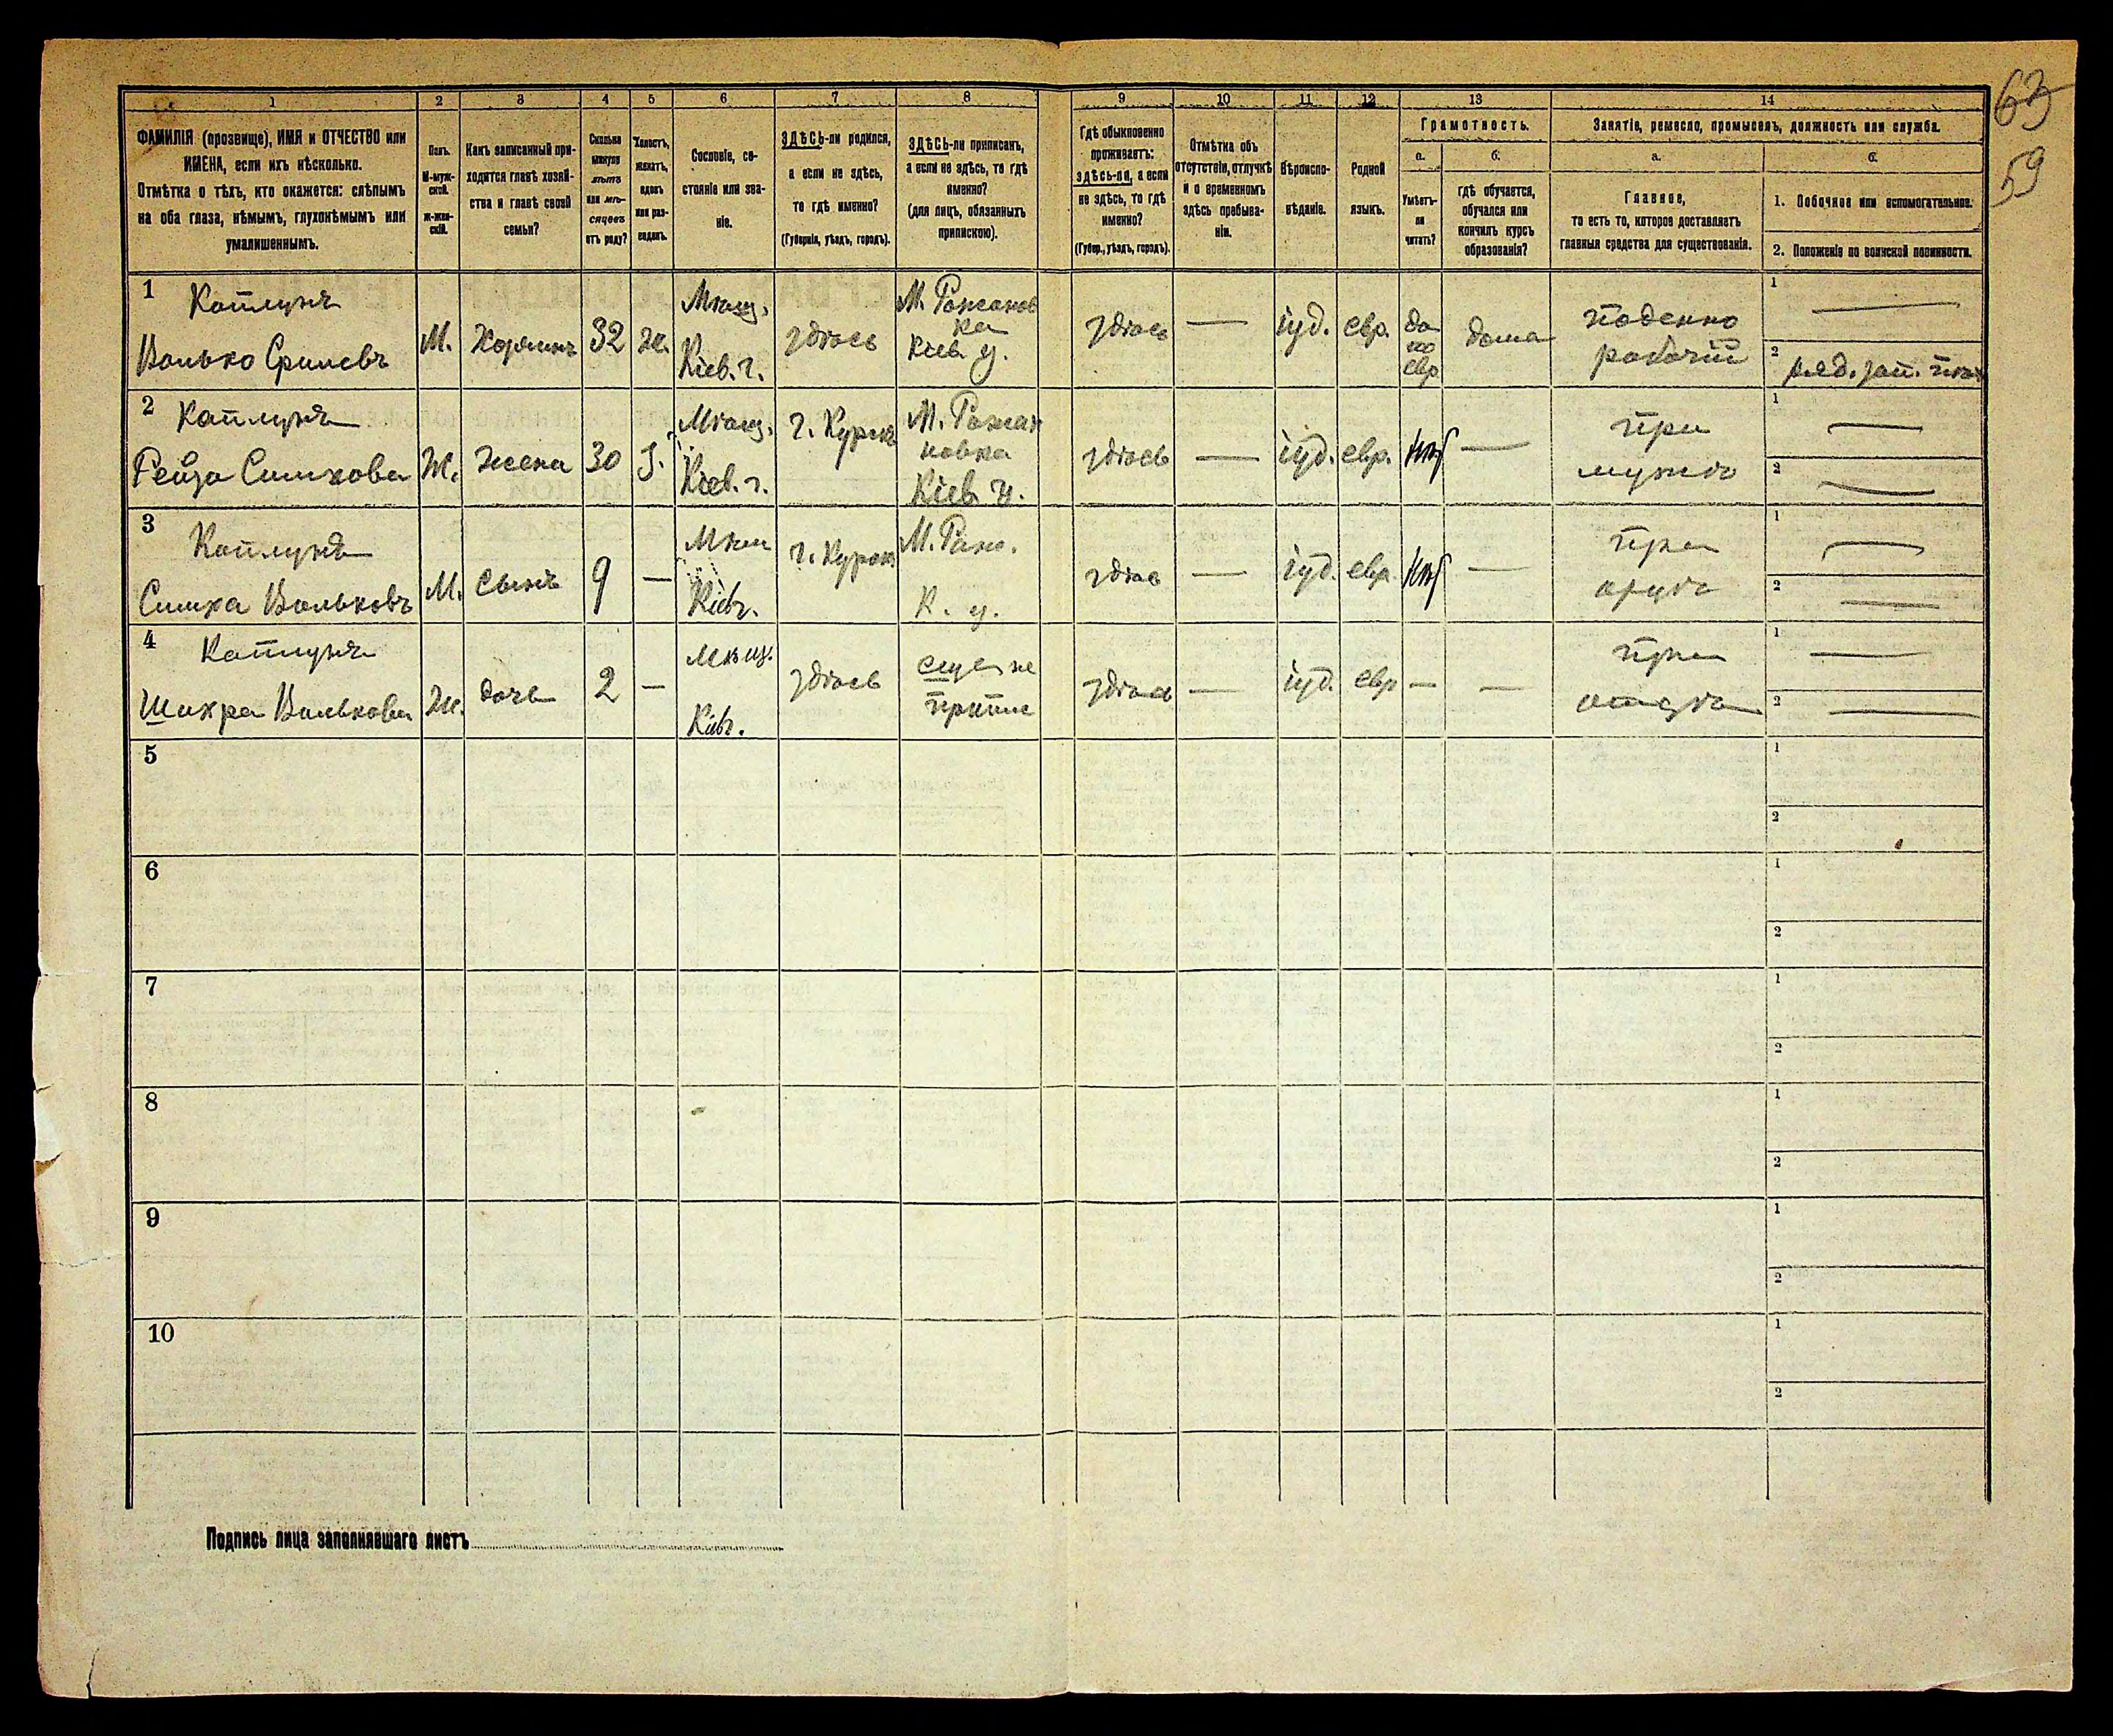 63
59
1 2 3 4 5 6 7 8 9 10 11 12 13 14
ФАМИЛІЯ (прозвище), ИМЯ и ОТЧЕСТВО или
ИМЕНА, если ихъ нѣсколько.
Отмѣтка о тѣхъ, кто окажется: слѣпымъ
на оба глаза, нѣмымъ, глухонѣмымъ или
умалишеннымъ.
Полъ.
М-муж-
ской.
Ж-жен-
скій.
Какъ записанный при-
ходится главѣ хозяй-
ства и главѣ своей
семьи?
Сколько
минуло
лѣтъ
или мѣ-
сяцевъ
отъ роду?
Холостъ,
женатъ,
вдовъ
или раз-
веденъ.
Сословіе, со-
стояніе или зва-
ніе.
ЗДѢСЬ-ли родился,
а если не здѣсь,
то гдѣ именно?
(Губернія, уѣздъ, городъ).
ЗДѢСЬ-ли приписанъ,
а если не здѣсь, то гдѣ
именно?
(для лицъ, обязанныхъ
припискою).
Гдѣ обыкновенно
проживаетъ:
здѣсь-ли, а если
не здѣсь, то гдѣ
именно?
(Губер., уѣздъ, городъ).
Отмѣтка объ
отсутствіи, отлучкѣ
и о временномъ
здѣсь пребыва-
ніи.
Вѣроиспо-
вѣданіе.
Родной
языкъ.
Грамотность.
а.
Умѣетъ-
ли
читать?
б.
гдѣ обучается,
обучался или
кончилъ курсъ
образованія?
Занятіе, ремесло, промыселъ, должность или служба.
а.
Главное,
то есть то, которое доставляетъ
главныя средства для существованія.
б.
1. Побочное или вспомогательное.
2. Положеніе по воинской повинности.
1 Каплунъ
Волько Срулевъ
М.
Хозяинъ
32
ж.
Мѣщ.
Кіев. г.
здѣсь
М. Рожанов
ка
Кіев. у.
здѣсь
—
іуд.
евр.
да
по
евр
дома
поденно
рабочій
1 —
2 ряд. зап.
2 Каплунъ
Рейза Симхова
Ж.
жена
30
З.
Мѣщ.
Кіев. г.
г. Курск
М. Рожан
новка
Кіев. у.
здѣсь
—
іуд.
евр.
нѣт
—
при
мужѣ
1 —
2 —
3 Каплунъ
Симха Вольковъ
М.
сынъ
9
—
Мѣщ
Кіевг.
г. Курск
М. Рож.
К. у.
здѣс
—
іуд.
евр.
нѣт
—
при
отцѣ
1 —
2 —
4 Каплунъ
Шихра Волькова
Ж.
дочь
2
—
Мѣщ.
Кіевг.
здѣсь
еще не
припис
здѣсь
—
іуд.
евр
—
—
при
отцѣ
1 —
2 —
5
1
2
6
1
2
7
1
2
8
1
2
9
1
2
10
1
2
Подпись лица заполнявшаго листъ